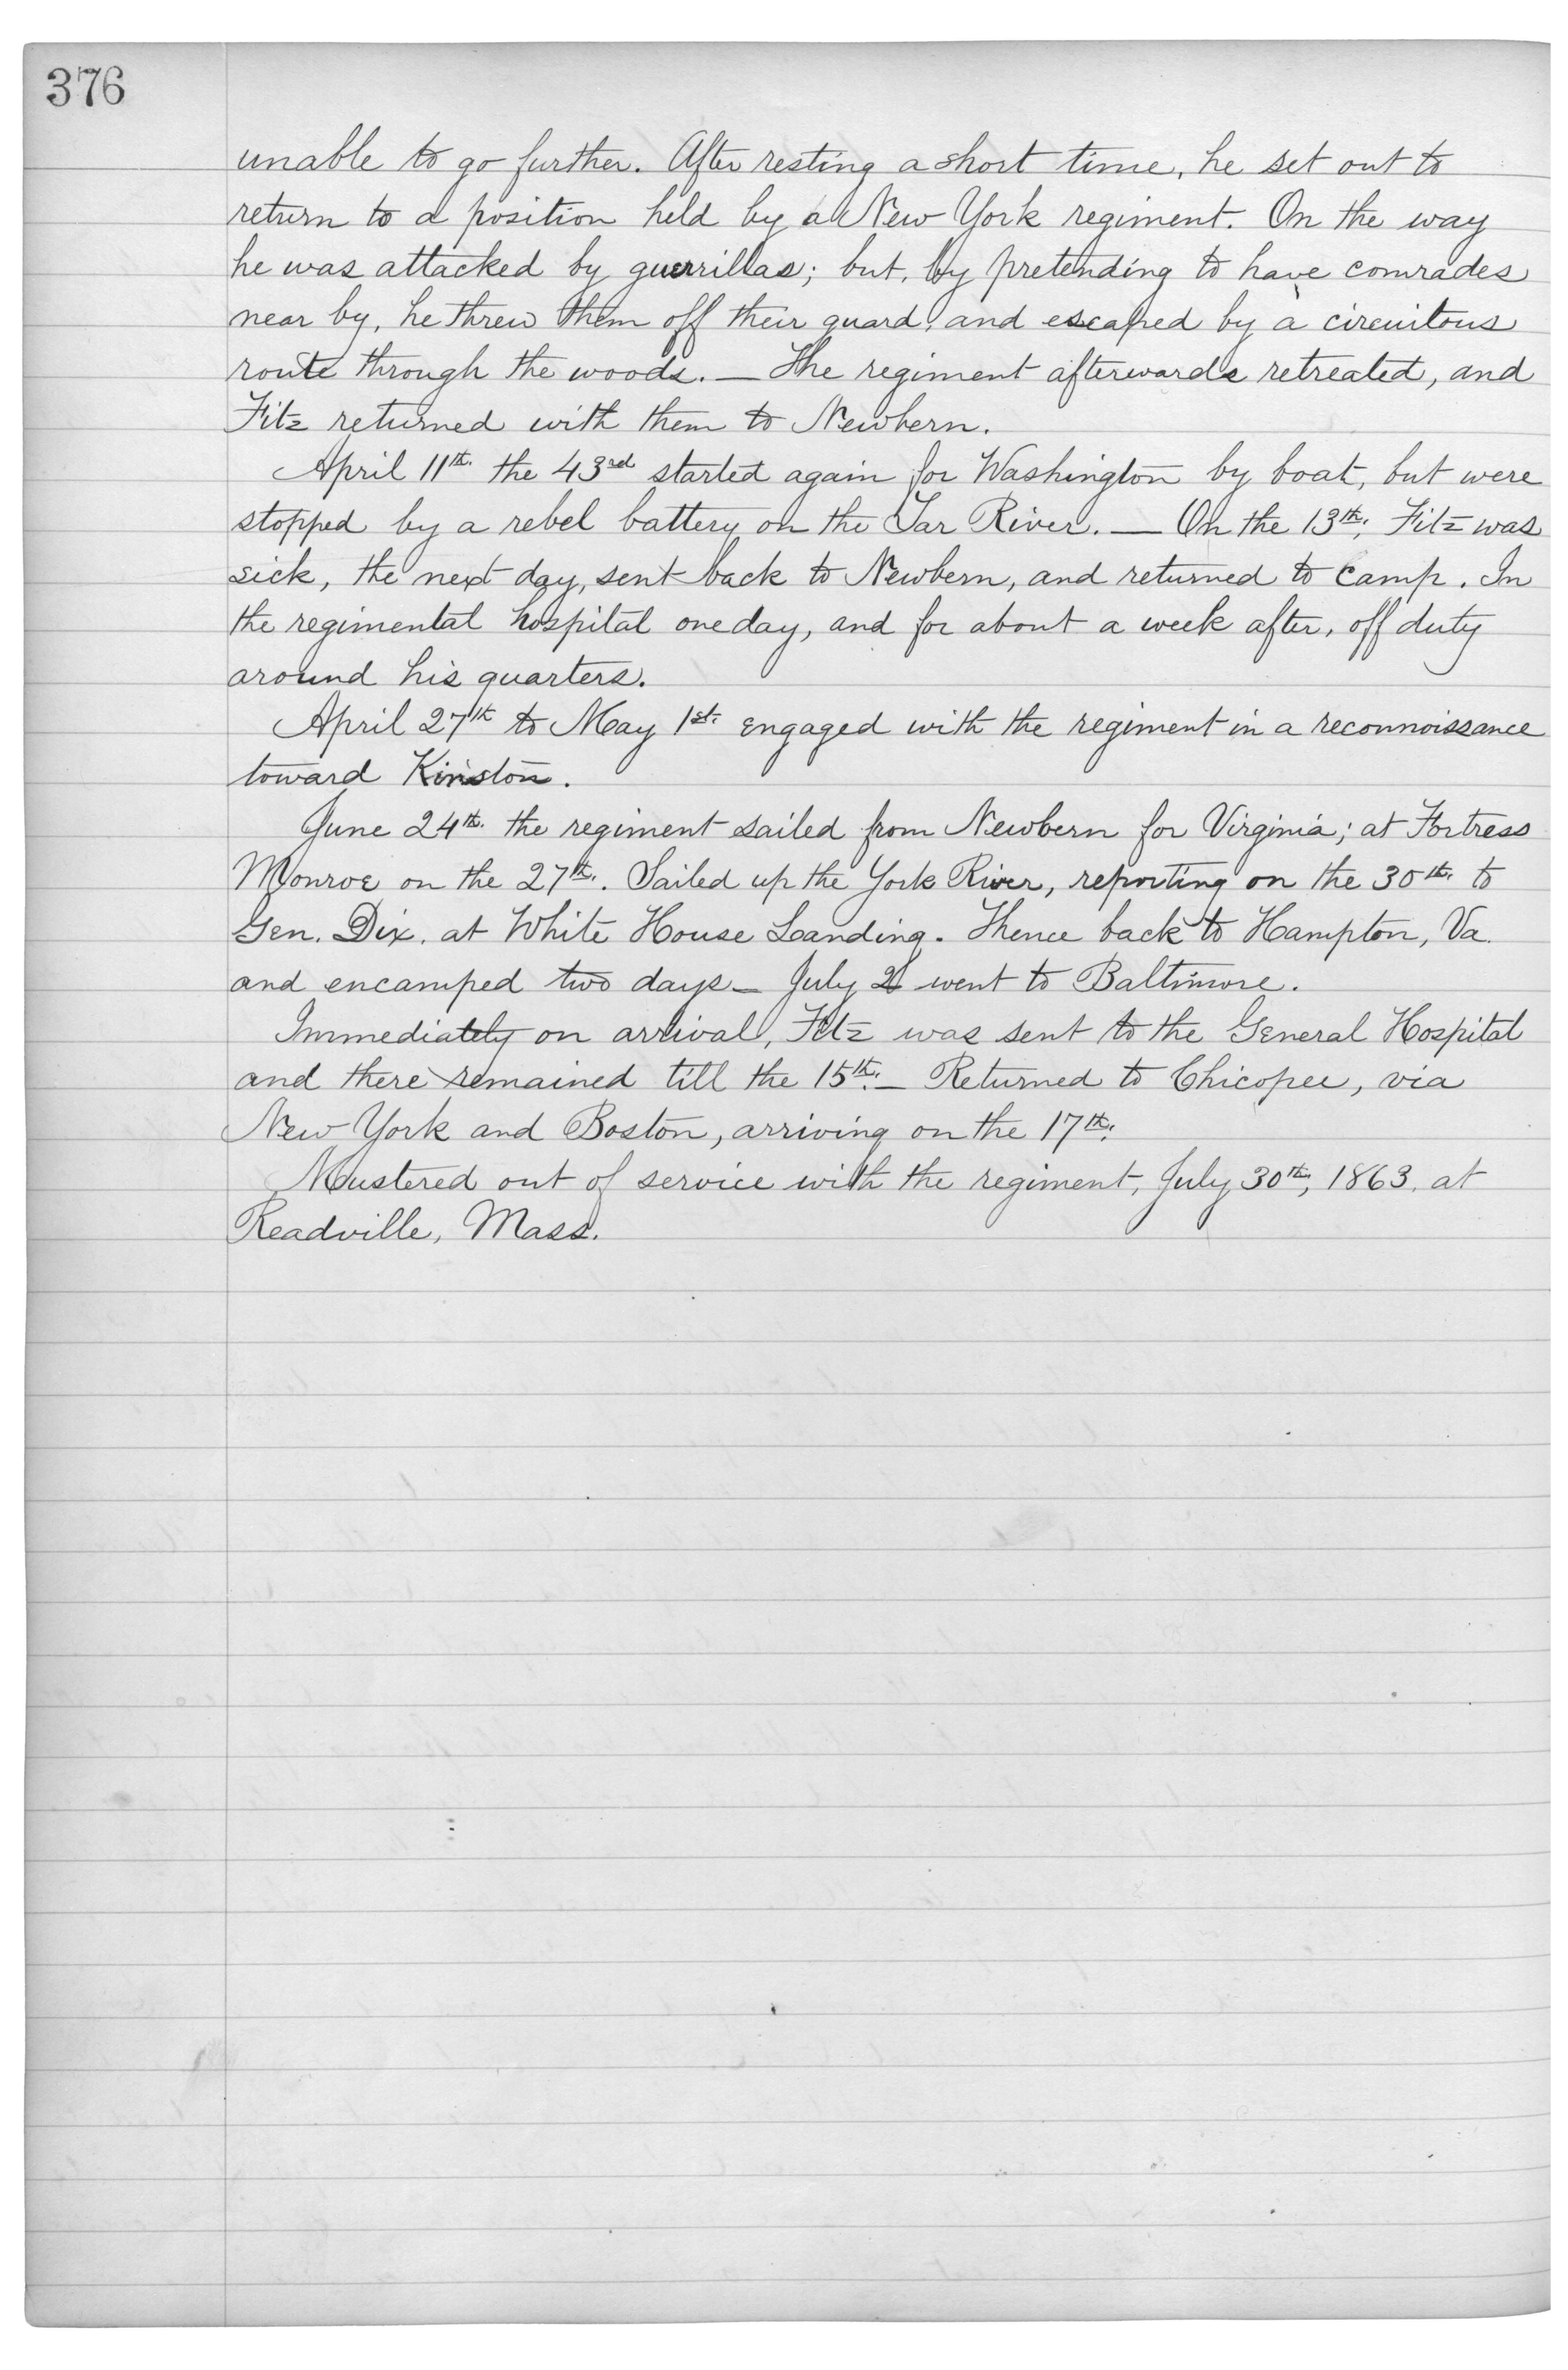 376
unable to go further. After resting a short time, he set out to
return to a position held by a New York regiment. On the way
he was attacked by guerrillas; but, by pretending to have comrades
near by, he threw them off their guard, and escaped by a circuitous
route through the woods. — The regiment afterwards retreated, and
Fitz returned with them to Newbern.
April 11th. the 43rd started again for Washington by boat, but were
stopped by a rebel battery on the Tar River. — On the 13th, Fitz was
sick, the next day, sent back to Newbern, and returned to camp. In
the regimental hospital one day, and for about a week after, off duty
around his quarters.
April 27th to May 1st. engaged with the regiment in a reconnoissance
toward Kinston.
June 24th. the regiment sailed from Newbern for Virginia; at Fortress
Monroe on the 27th. Sailed up the York River, reporting on the 30th. to
Gen. Dix, at White House Landing. Thence back to Hampton, Va.
and encamped two days — July went to Baltimore.
Immediately on arrival, Fitz was sent to the General Hospital
and there remained till the 15th. — Returned to Chicopee, via
New York and Boston, arriving on the 17th.
Mustered out of service with the regiment, July 30th, 1863, at
Readville, Mass.